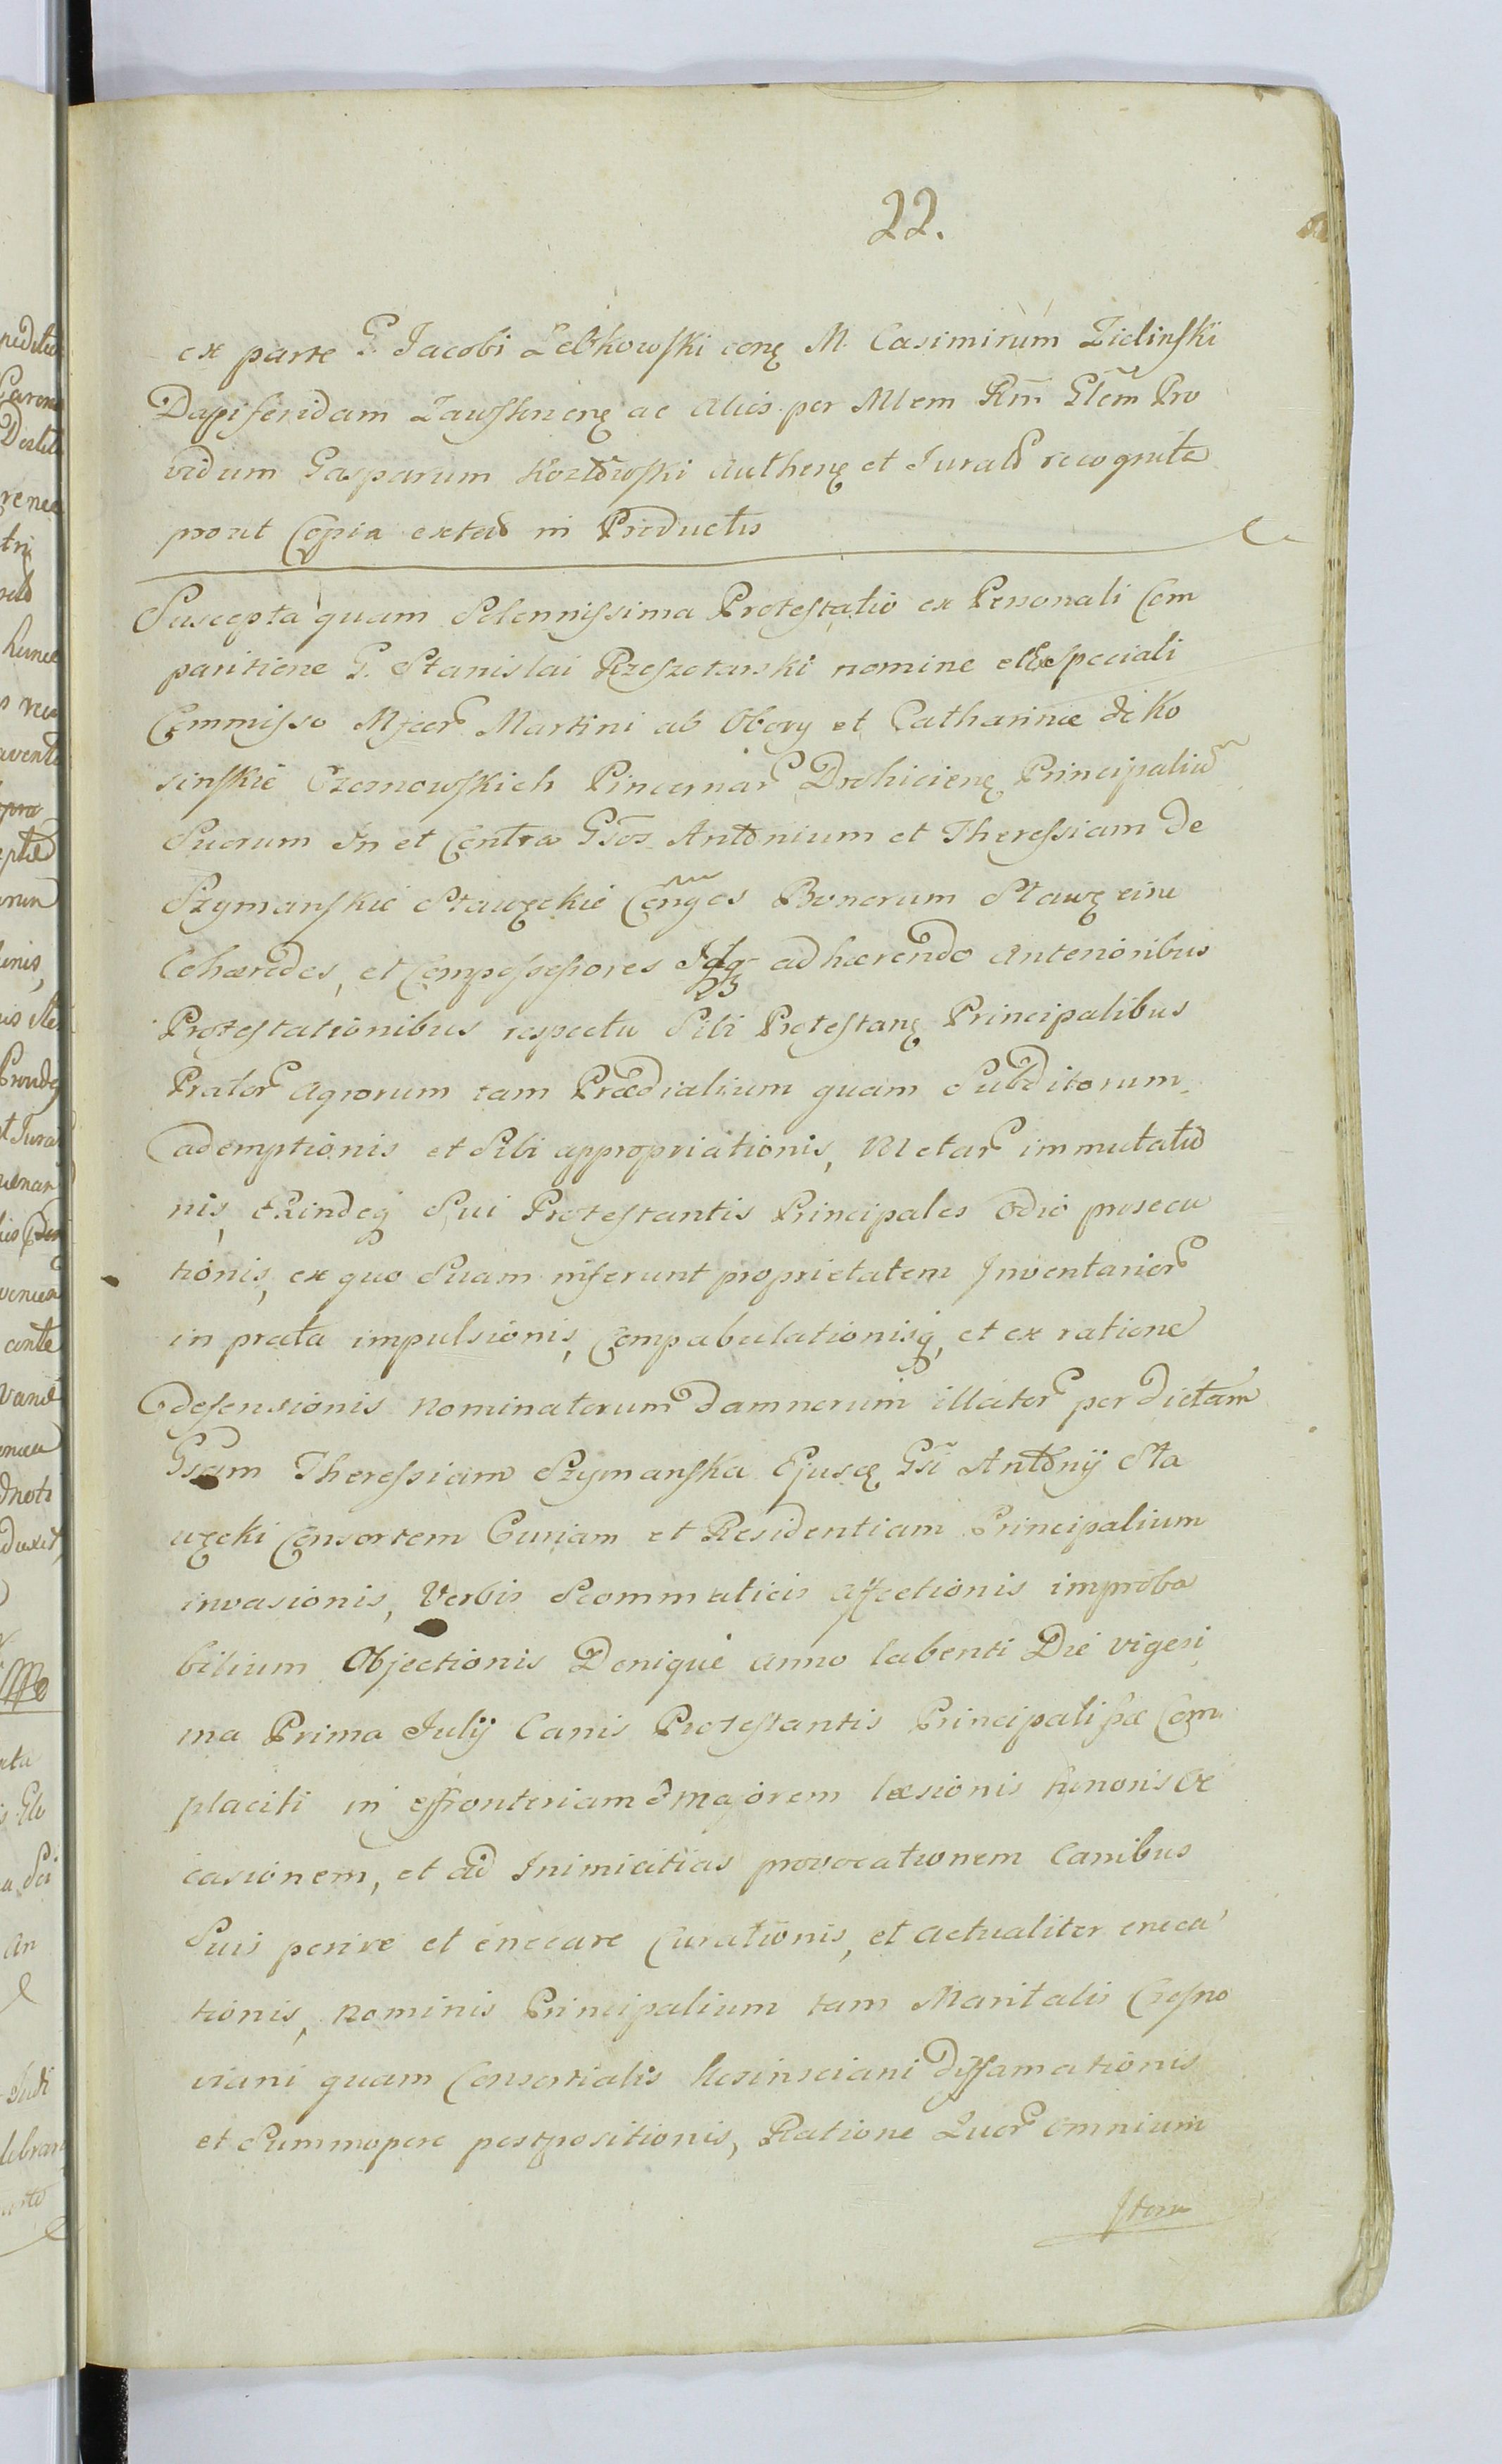 22.
ex parte G. Jacobi Zebkowski conę M. Casimirum Zielinski
Dapiferidam Zawskrienę ac Alios per Mlem Rm̃ Gl̃em Pro
vidum Gasparum Kozłowski Authenę et Jurato recognita
prout Copia extad in Productis
Suscepta quam Solennissima Protestatio ex Personali Com
paritione G. Stanislai Rzeszotarski nomine et Speciali
Commisso Mfcor Martini ab Obory et Catharinæ de Ko
sinskie Czosnowskich Pincernar Drohicienę Principaliu
Suorum In et Contra Gs̃os Antonium et Theressiam de
Szymanskie Stawęckie Conges Bonorum Stawęcine
Cohæredes, et Compossessores adhærendo Anterioribus
Protestationibus respectu Sibi Protestanę Principalibus
Prator Agrorum tam Prædialium quam Subditorum
ademptionis et Sibi appropriationis, Metar immutatio
nis, Exindeq Sui Protestantis Principales Odio prosecu
tionis, ex quo Suam inferunt proprietatem Inventarior
in prata impulsionis, Compabulationisq, et ex ratione
defensionis nominatorum damnorum illator per dictam
Gsam Theressiam Szymanska Ejusę Gs̃i Antonij Sta
węcki Consortem Curiam et Residentiam Principalium
invasionis, Verbis Scommaticis Affectionis improba
bilium Objectionis Denique anno labenti Die vigesi
ma Prima July Canis Protestantis Principali pæ Com
placiti in effronteriam majorem læsionis honoris Oc
casionem, et ad Inimicitias provocationem Canibus
Suis perire et enecare Curationis, et actualiter eneca
tionis, Nominis Principalium tam Maritalis Czosno
viani quam Consortialis Kosinsciani diffamationis
et Summopere postpositionis, Ratione Quor omnium
Item